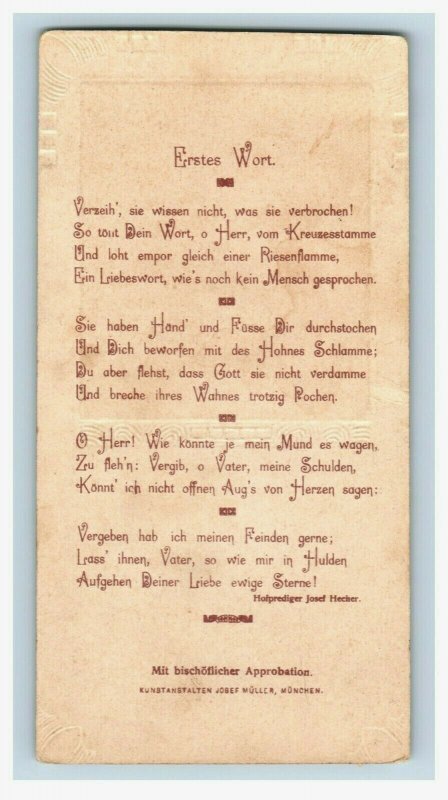 Erstes Wort.
Verzeih', sie wissen nicht, was sie verbrochen!
So tönt Dein Wort, o Herr, vom Kreuzesstamme
Und loht empor gleich einer Riesenflamme,
Ein Liebeswort, wie's noch kein Mensch gesprochen.
Sie haben Händ' und Füsse Dir durchstochen
Und Dich beworfen mit des Hohnes Schlamme;
Du aber flehst, dass Gott sie nicht verdamme
Und breche ihres Wahnes trotzig Pochen.
O Herr! Wie könnte je mein Mund es wagen,
Zu fleh'n: Vergib, o Vater, meine Schulden,
Könnt' ich nicht offnen Aug's von Herzen sagen:
Vergeben hab ich meinen Feinden gerne;
Lass' ihnen, Vater, so wie mir in Hulden
Aufgehen Deiner Liebe ewige Sterne!
Hofprediger Josef Hecher.
Mit bischöflicher Approbation.
KUNSTANSTALTEN JOSEF MÜLLER, MÜNCHEN.